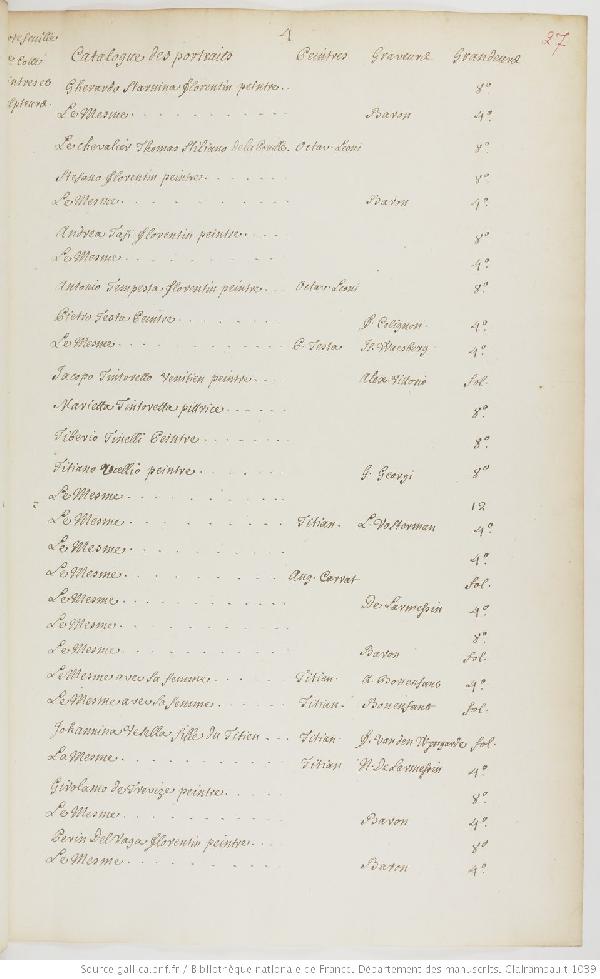 4
27
Catalogue des portraits Peintres Graveurs Grandeurs
Gherardo Starnina florentin peintre 8º
Le Mesme Baron 4º
Le chevalier Thomas Octav. Leoni 8º
Stefano florentin peintre 8º
Le Mesme Baron 4º
Andrea Taffi florentin peintre 8º
Le Mesme 4º
Antonio Tempesta florentin peintre Octav. Leoni 8º
Pietro Testa Peintre F. Colignon 4º
Le Mesme P. Testa 4º
Jacopo Tintoretto Venitien peintre Alex. Vittorio fol.
Marietta Tintoretta pittrice 8º
Tiberio Tinelli Peintre 8º
Titiano Vecellio peintre G. Georgi 8º
Le Mesme 12
Le Mesme Titian L. Vosterman 4º
Le Mesme 4º
Le Mesme Aug. Carrat fol.
Le Mesme De Larmessin 4º
Le Mesme 8º
Le Mesme Baron fol.
Le Mesme avec sa femme Titian A. Bonenfant 4º
Le Mesme avec sa femme Titian Bonenfant fol.
Johannina Vesella fille du Titien Titian J. Vanden fol.
La Mesme Titian N. De Larmessin 4º
Girolamo de Trevize peintre 8º
Le Mesme Baron 4º
Perin Del Vaga florentin peintre 8º
Le Mesme Baron 4º
Source gallica.bnf.fr / Bibliothèque nationale de France. Département des manuscrits. Clairambault 1039